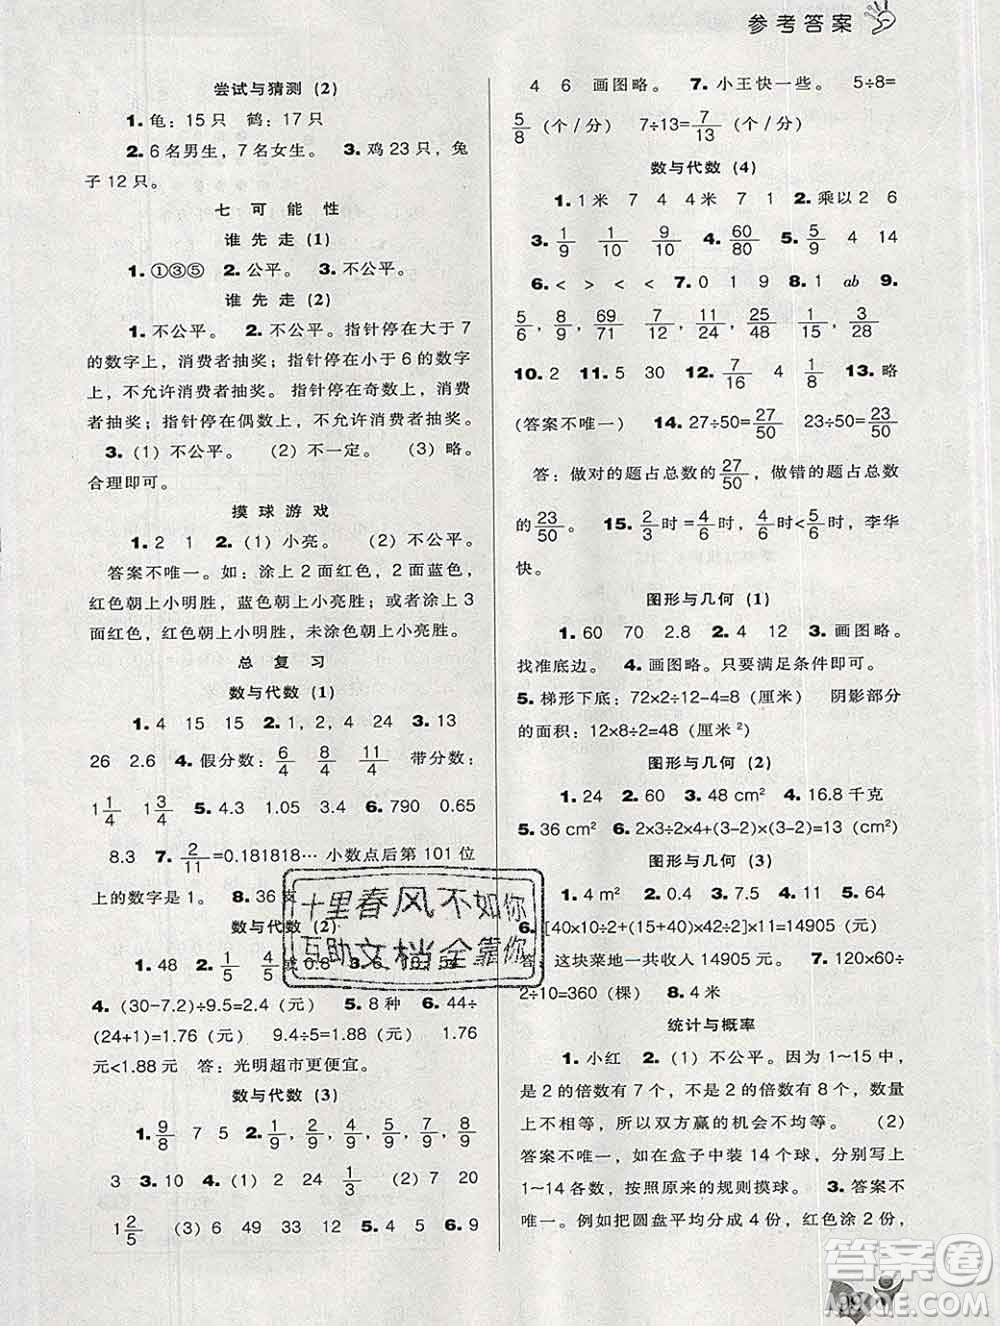 参考答案
尝试与猜测 (2)
1. 龟：15 只　鹤：17 只
2. 6 名男生，7 名女生。　3. 鸡 23 只，兔
子 12 只。
七 可 能 性
谁 先 走 (1)
1. ①③⑤　2. 公平。　3. 不公平。
谁 先 走 (2)
1. 不公平。　2. 不公平。指针停在大于 7
的数字上，消费者抽奖；指针停在小于 6 的数字
上，不允许消费者抽奖。指针停在奇数上，消费
者抽奖；指针停在偶数上，不允许消费者抽奖。
3. (1) 不公平。　(2) 不一定。　(3) 略。
合理即可。
摸 球 游 戏
1. 2　1　2. (1) 小亮。　(2) 不公平。
答案不唯一。如：涂上 2 面红色，2 面蓝色，
红色朝上小明胜，蓝色朝上小亮胜；或者涂上 3
面红色，红色朝上小明胜，未涂色朝上小亮胜。
总 复 习
数与代数 (1)
1. 4　15　15　2. 1, 2, 4　24　3. 13
26　2.6　4. 假分数：6/4　8/4　11/4　带分数：
1 1/4　1 3/4　5. 4.3　1.05　3.4　6. 790　0.65
8.3　7. 2/11=0.181818… 小数点后第 101 位
上的数字是 1。　8. 36
数与代数 (2)
1. 48　2. 1/5　4/5或 0.8　3. 6　10
4. (30-7.2)÷9.5=2.4（元）　5. 8 种　6. 44÷
(24+1)=1.76（元）　9.4÷5=1.88（元）　1.76
元<1.88 元　答：光明超市更便宜。
数与代数 (3)
1. 9/8　7　5　2. 1/9, 2/9, 4/9, 5/9, 7/9, 8/9
3　3. 10　4. (1) 2　24　1/3　(2) 7　20
1 2/5　(3) 6　49　33　12　5. 4　5　6. 9
4　6　画图略。　7. 小王快一些。　5÷8=
5/8（个 / 分）　7÷13=7/13（个 / 分）
数与代数 (4)
1. 1米　7　4　4米　7　1　2. 乘以 2　6
3. 1/9　1/10　9/10　4. 60/80　5. 5/9　4　14
6. <　>　<　<　7. 0　1　9　8. 1　ab　9.
5/6, 8/9, 69/71　7/24, 11/24, 25/48　1/15, 3/28
10. 2　11. 5　30　12. 7/16　4　1/8　13. 略
(答案不唯一)　14. 27÷50=27/50　23÷50=23/50
答：做对的题占总数的27/50，做错的题占总数
的23/50。　15. 2/3时=4/6时，4/6时<5/6时，李华
快。
图形与几何 (1)
1. 60　70　2.8　2. 4　12　3. 画图略。
找准底边。　4. 画图略。只要满足条件即可。
5. 梯形下底：72×2÷12-4=8（厘米）　阴影部分
的面积：12×8÷2=48（厘米²）
图形与几何 (2)
1. 24　2. 60　3. 48 cm²　4. 16.8 千克
5. 36 cm²　6. 2×3÷2×4+(3-2)×(3-2)=13 (cm²)
图形与几何 (3)
1. 4　2. 0.4　3. 7.5　4. 11　5. 64
6. [40×10÷2+(15+40)×42÷2]×11=14905（元）
答：这块菜地一共收入 14905 元。　7. 120×60÷
2÷10=360（棵）　8. 4 米
统计与概率
1. 小红　2. (1) 不公平。因为 1~15 中，
是 2 的倍数有 7 个，不是 2 的倍数有 8 个，机会
不相等，所以双方赢的机会不均等。　(2)
答案不唯一，如在盒子中装 14 个球，分别写上
1~14 各数，按照原来的规则摸球。　3. 答案不
唯一。例如把圆盘平均分成 4 份，红色涂 2 份，
十里春风不如你
互助文档全靠你
答案圈
99